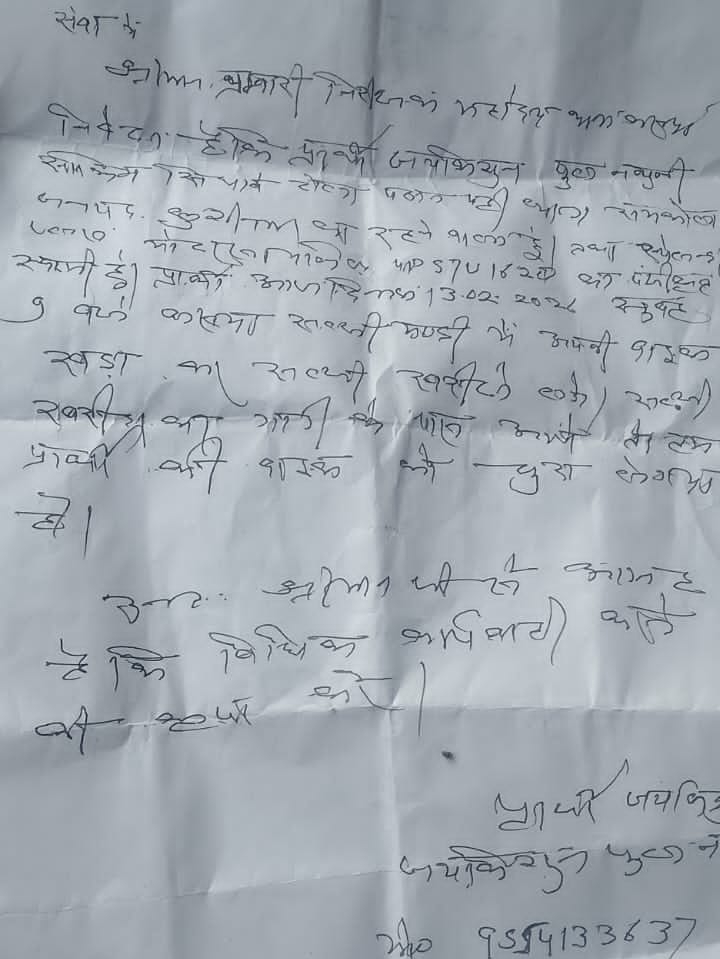 सेवा में
श्रीमान प्रभारी निरीक्षक महोदय थाना कसया
निवेदन है कि प्रार्थी जयकिशुन पुत्र नथुनी
साकिन टोला थाना रामकोला
जनपद कुशीनगर का रहने वाला है। तथा
मोटरसाइकिल UP 57 U 1620 का पंजीकृत
स्वामी है। प्रार्थी आज दिनांक 13.02.2026 सुबह
9 बजे कसया सब्जी मण्डी में अपनी बाइक
खड़ा कर सब्जी खरीदने लगे। सब्जी
खरीद कर गाड़ी के पास आये तो तब
प्रार्थी की बाइक को चुरा ले गया
है।
अतः श्रीमान जी से
है कि विधिक कार्यवाही करने
की कृपा करें।
प्रार्थी जयकिशु
जयकिशुन पुत्र न
Mo 9554133637